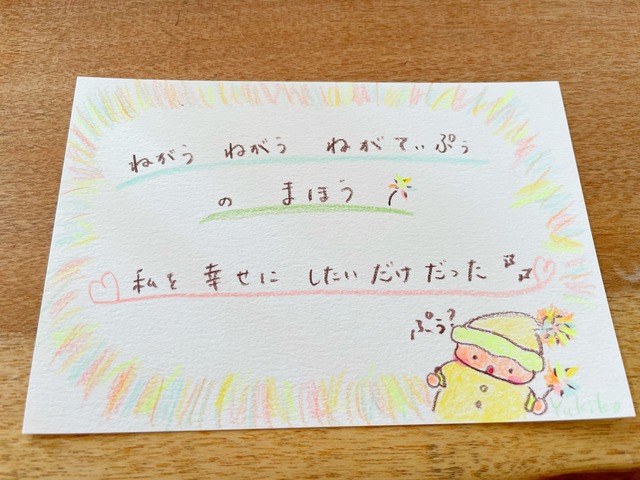 ねがう ねがう ねがてぃぷぅ
の まほう
私を 幸せに したいだけだった
ぷぅ?
Yukiko